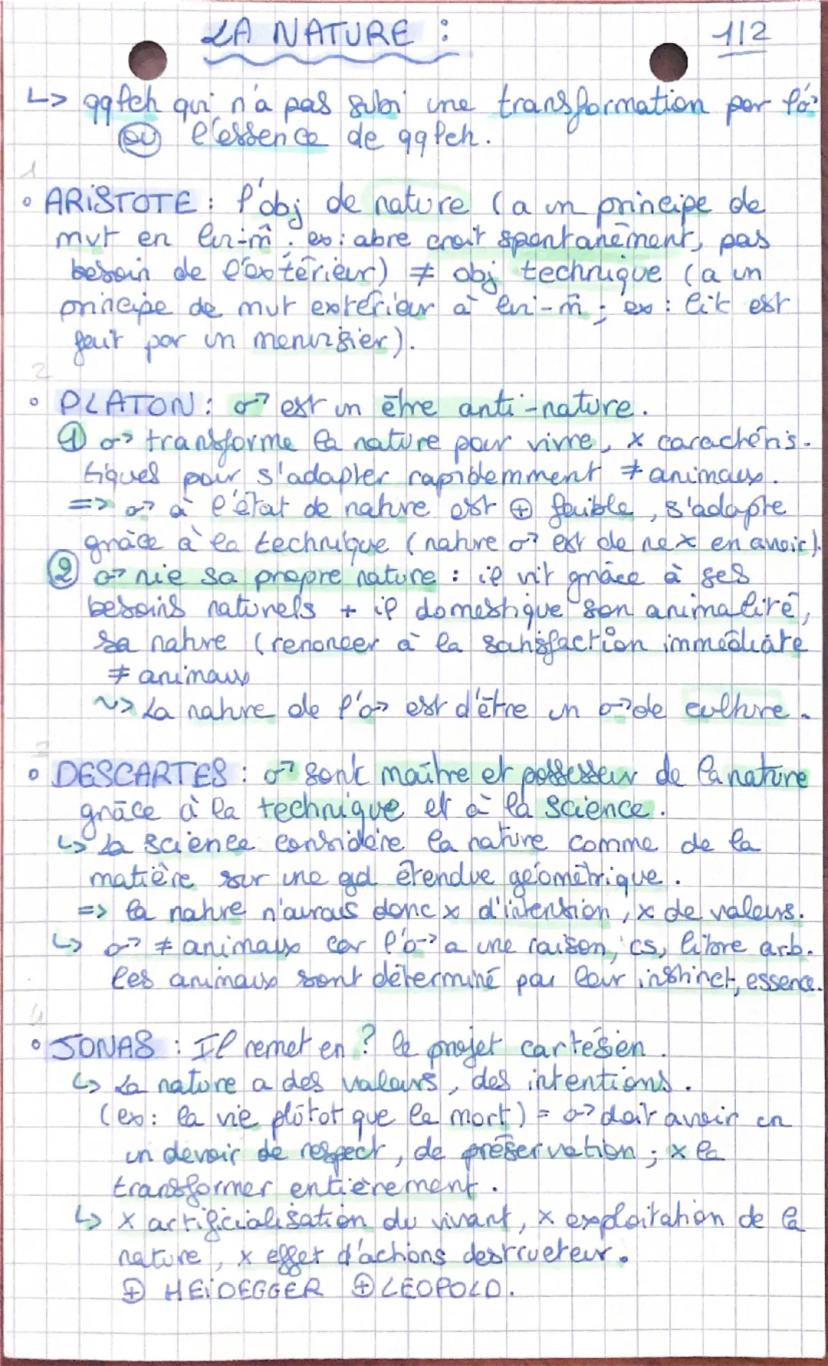 LA NATURE : 1/2
↳ qqch qui n'a pas subi une transformation par l'♂
ou l'essence de qqch.
1
• ARISTOTE : l'obj de nature (a un principe de
mvt en lui-m̂ ; ex : abre croît spontanément, pas
besoin de l'extérieur) ≠ obj technique (a un
principe de mvt extérieur à lui-m̂ ; ex : lit est
fait par un menuisier).
2
• PLATON : ♂ est un être anti-nature.
① ♂ transforme la nature pour vivre, x caractéris-
tiques pour s'adapter rapidemment ≠ animaux.
=> ♂ à l'état de nature est ⊕ faible, s'adapte
grâce à la technique (nature ♂ est de ne x en avoir).
② ♂ nie sa propre nature : il vit grâce à ses
besoins naturels + il domestique son animalité,
sa nature (renoncer à la satisfaction immédiate
≠ animaux
~> La nature de l'♂ est d'être un ♂ de culture.
3
• DESCARTES : ♂ sont maître et possesseur de la nature
grâce à la technique et à la science.
↳ La science considère la nature comme de la
matière sur une gd étendue géométrique.
=> la nature n'aurais donc x d'intension, x de valeurs.
↳ ♂ ≠ animaux car l'♂ a une raison, cs, libre arb.
les animaux sont déterminé par leur instinct, essence.
4
• JONAS : Il remet en ? le projet cartésien.
↳ La nature a des valeurs, des intentions.
(ex : la vie plûtot que la mort) = ♂ doit avoir en
un devoir de respect, de préservation ; x la
transformer entièrement.
↳ x artificialisation du vivant, x exploitation de la
nature, x effet d'actions destructeur.
⊕ HEIDEGGER ⊕ LEOPOLD.